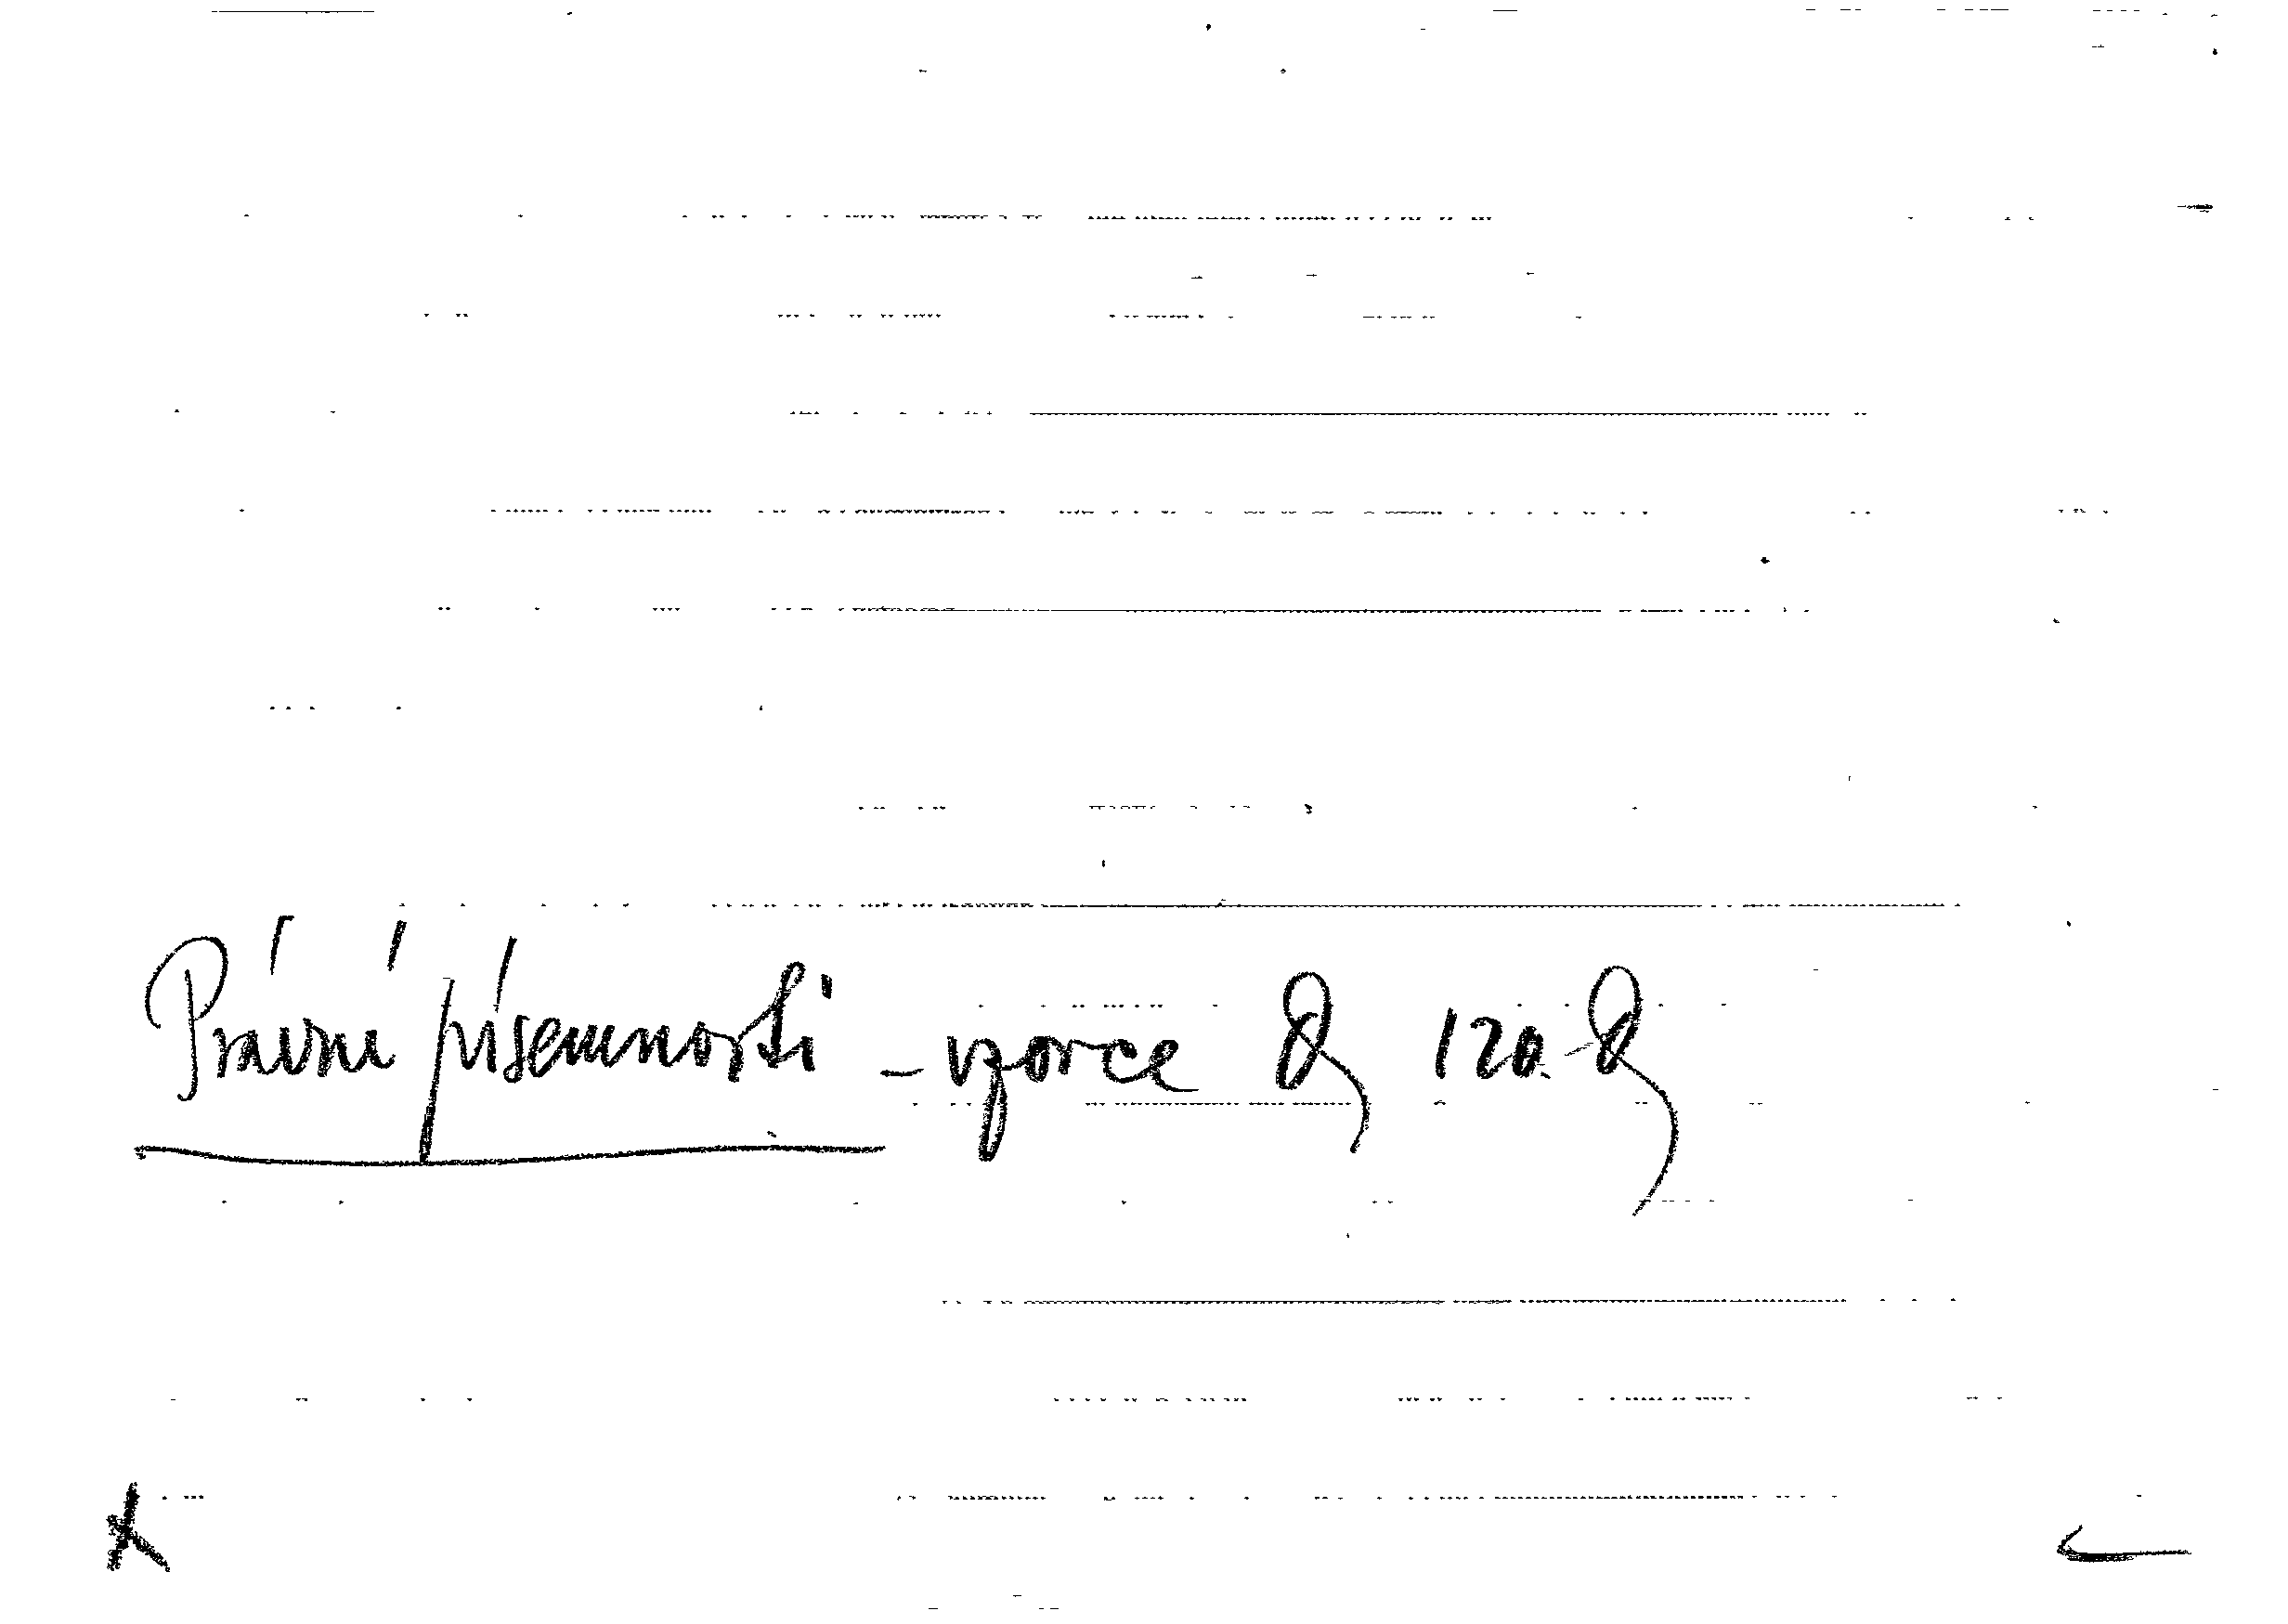 Právní písemnosti - vzorce & 120.-&
K